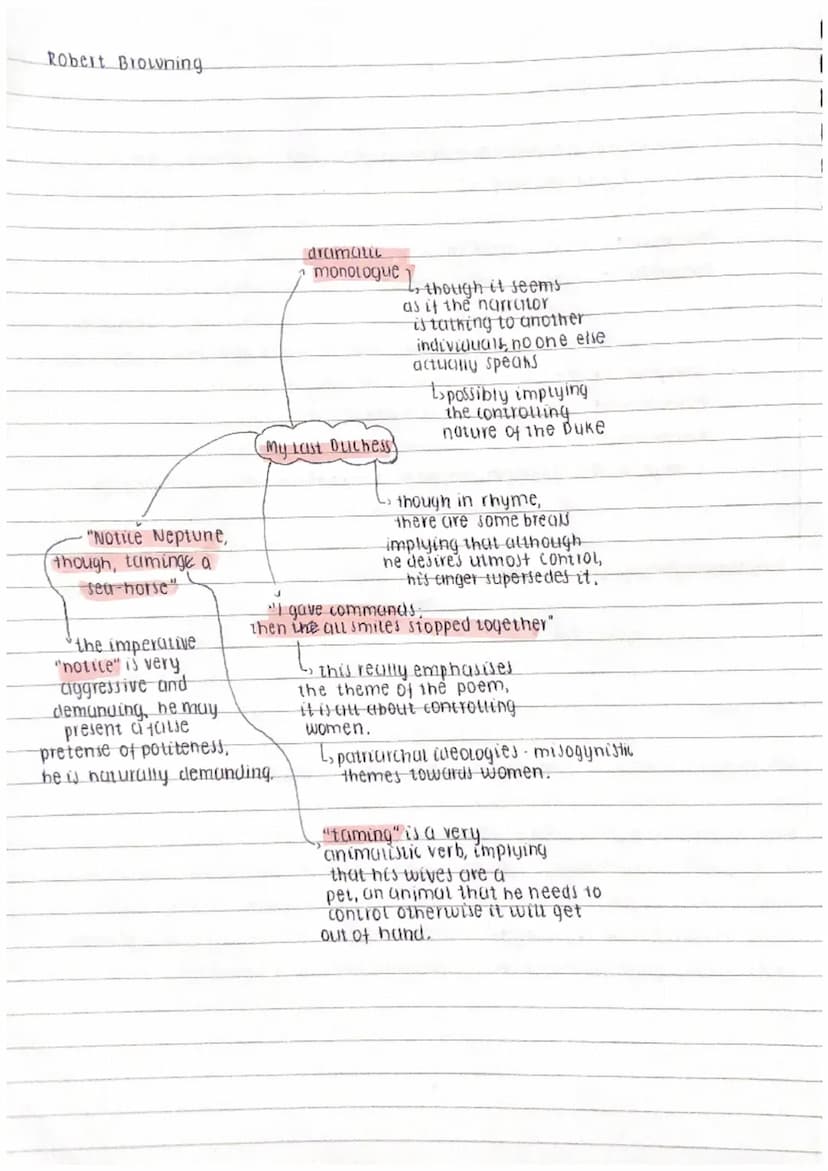 Robert Browning
dramatic
monologue
↳ though it seems
as if the narrator
is talking to another
individual, no one else
actually speaks
↳ possibly implying
the controlling
nature of the Duke
My Last Duchess
↳ though in rhyme,
there are some breaks
implying that although
he desires utmost control,
his anger supersedes it.
"Notice Neptune,
though, taming a
sea-horse"
the imperative
"notice" is very
aggressive and
demanding, he may
present a false
pretense of politeness,
he is naturally demanding.
"I gave commands;
then all smiles stopped together"
↳ this really emphasises
the theme of the poem,
it is all about controlling
women.
↳ patriarchal ideologies - misogynistic
themes towards women.
"taming" is a very
animalistic verb, implying
that his wives are a
pet, an animal that he needs to
control otherwise it will get
out of hand.